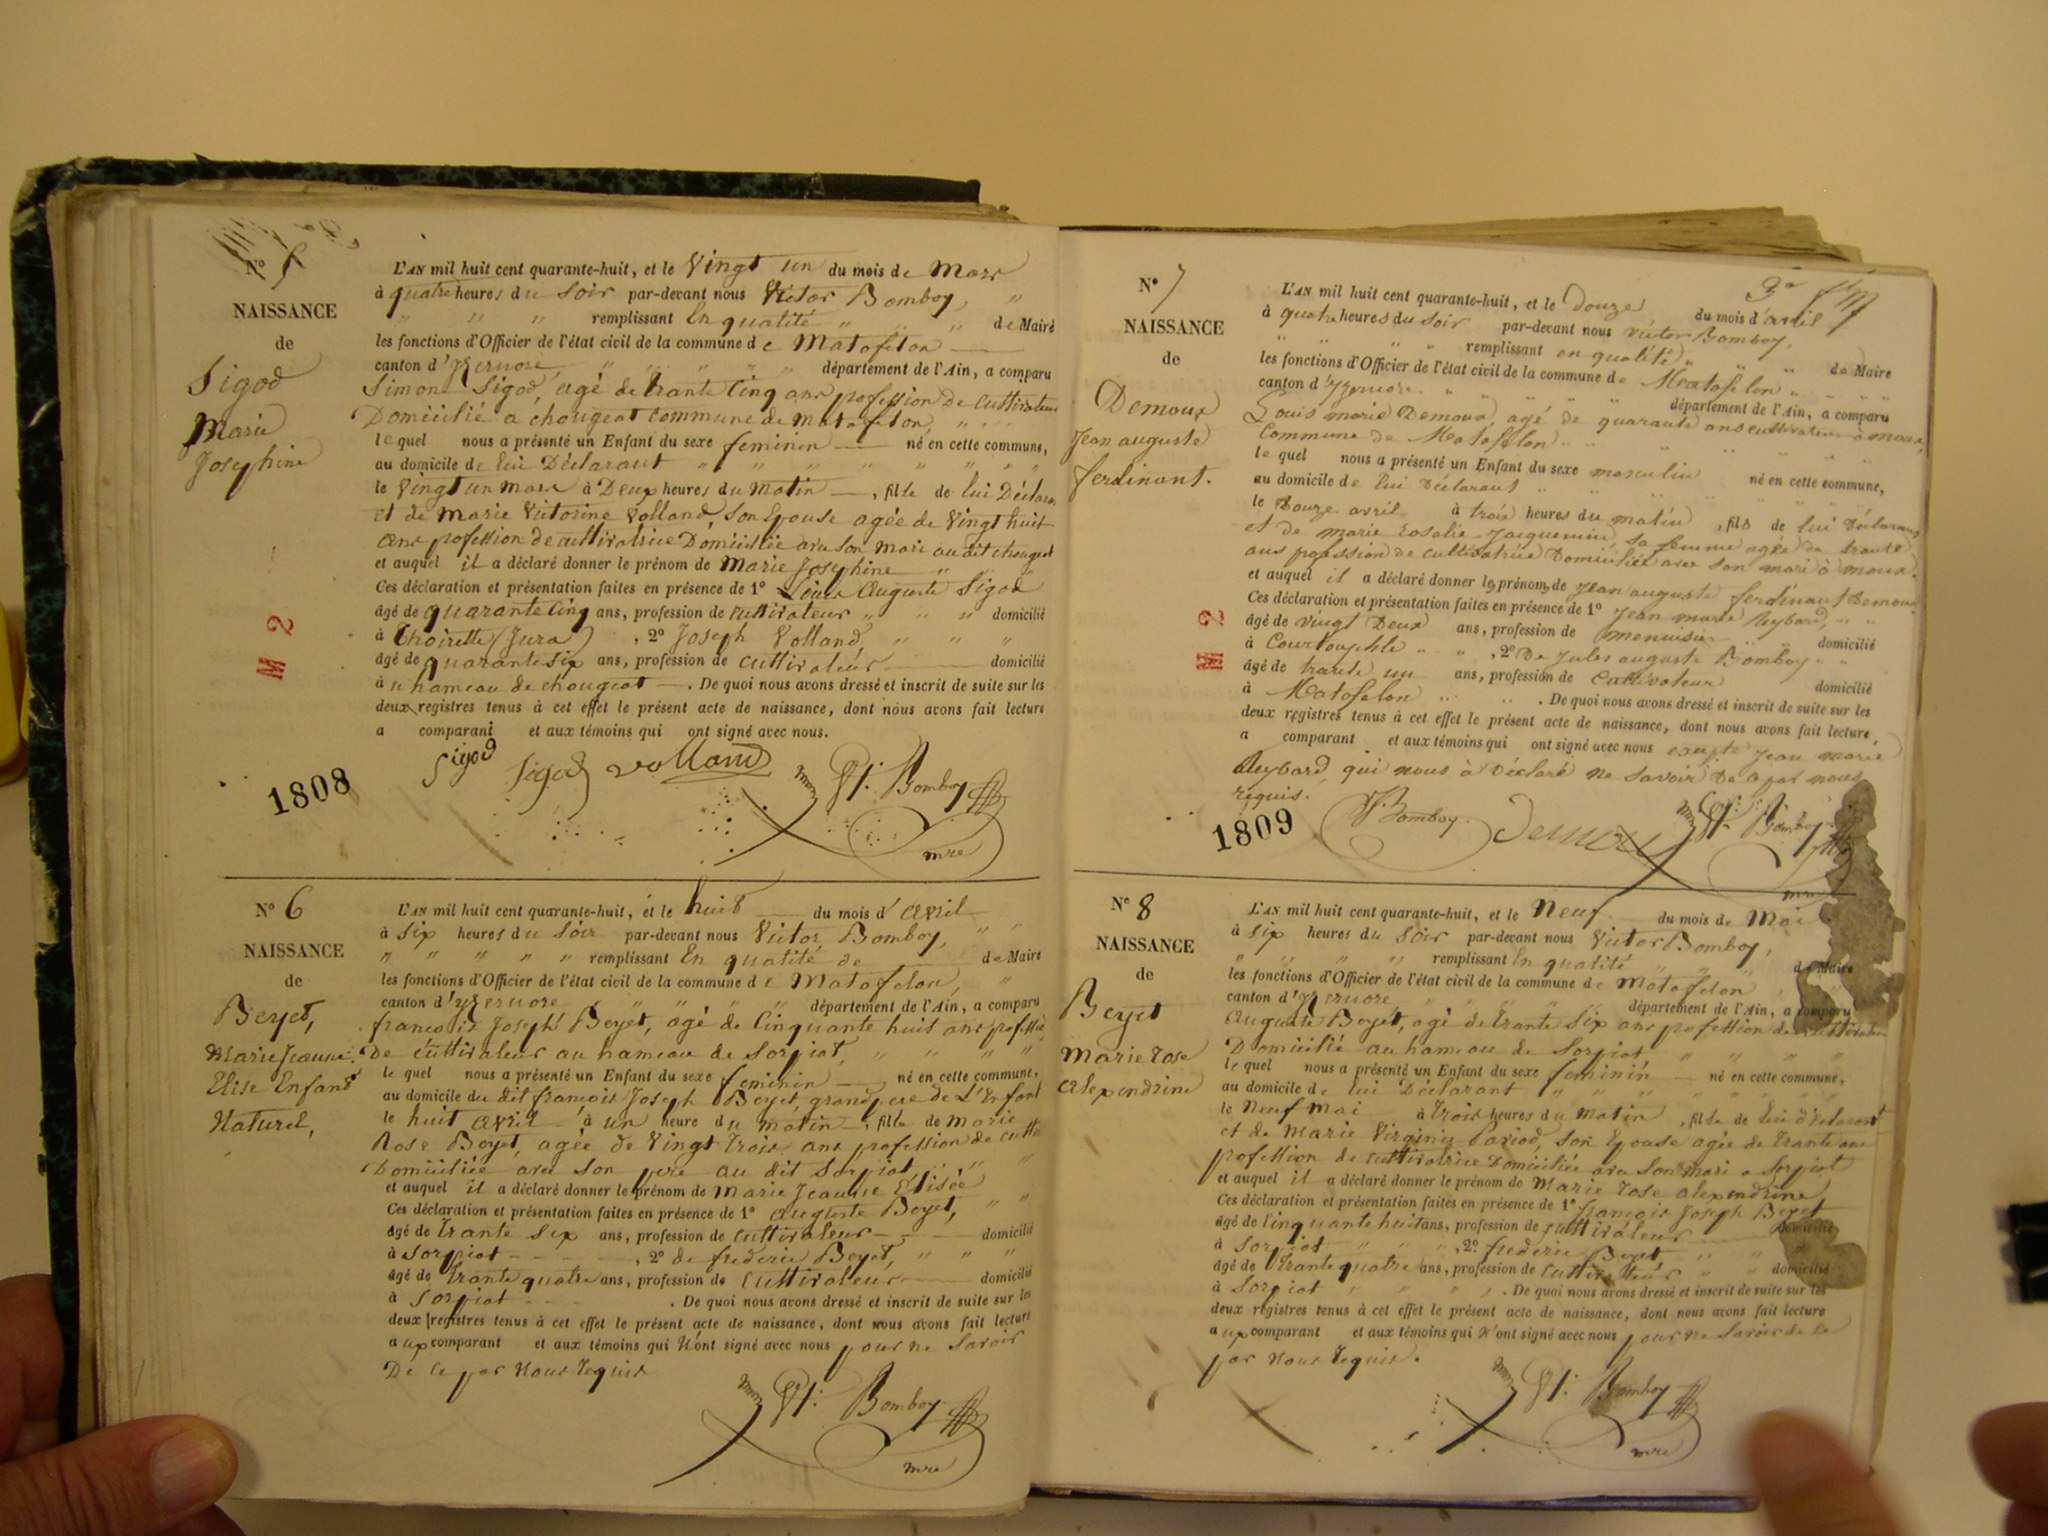 N° 5
NAISSANCE
de
Sigod
Marie
Josephine
L'AN mil huit cent quarante-huit, et le Vingt un du mois de Mars
à quatre heures du Soir par-devant nous Victor Bomboy, "
" " " remplissant En qualité " " " de Maire
les fonctions d'Officier de l'état civil de la commune de Matafelon
canton d'Yzernore " " " département de l'Ain, a comparu
Simon Sigod, agé de trante Cinq ans profession de Cuttivateur
Domicilié a chougeat commune de matafelon, " " "
le quel nous a présenté un Enfant du sexe feminin né en cette commune,
au domicile de lui Déclarant " " " " " " "
le Vingt un mars à Deux heures du Matin, fille de lui Déclara
et de Marie Victorine Volland, Son Epouse agée de Vingt huit
ans profession de cuttivatrice Domicilié avec Son mari au dit chougeat
et auquel il a déclaré donner le prénom de Marie Josephine " " "
Ces déclaration et présentation faites en présence de 1° Louis Auguste Sigod
âgé de quarante Cinq ans, profession de cuttivateur " " " domicilié
à Thoirette (Jura), 2° Joseph Volland " " "
âgé de quarante Six ans, profession de cuttivateur domicilié
à u hameau de chougeat. De quoi nous avons dressé et inscrit de suite sur les
deux registres tenus à cet effet le présent acte de naissance, dont nous avons fait lecture
a comparant et aux témoins qui ont signé avec nous.
Sigod Sigod volland Vr. Bomboy
mre
M 2
1808
N° 6
NAISSANCE
de
Beyet,
Marie Jeanne
Elise Enfant
Naturel,
L'AN mil huit cent quarante-huit, et le huit du mois d'avril
à Six heures du Soir par-devant nous Victor Bomboy, " "
" " " " " remplissant En qualité de de Maire
les fonctions d'Officier de l'état civil de la commune de Matafelon, "
canton d'yzernore " " " " département de l'Ain, a comparu
francois Joseph Beyet, agé de Cinquante huit ans profession
De cuttivateur au hameau de Sorpiat, " " " "
le quel nous a présenté un Enfant du sexe feminin né en cette commune,
au domicile du dit françois Joseph Beyet grand pere de L'Enfant
le huit avril à un heure du matin, fille de Marie
Rose Beyet, agée de Vingt Trois ans profession de cutti
Domiciliée avec Son pere au dit Sorpiat, " " "
et auquel il a déclaré donner le prénom de Marie Jeanne Elisée
Ces déclaration et présentation faites en présence de 1° auguste Beyet, " "
âgé de trante Six ans, profession de cuttivateur domicilié
à Sorpiat, 2° de frederic Beyet, " " "
âgé de trante quatre ans, profession de cuttivateur domicilié
à Sorpiat. De quoi nous avons dressé et inscrit de suite sur les
deux registres tenus à cet effet le présent acte de naissance, dont nous avons fait lecture
a ux comparant et aux témoins qui N'ont signé avec nous pour ne Savoir
De ce par Nous Requis
Vr. Bomboy
mre
N° 7
NAISSANCE
de
Demoux
Jean auguste
ferdinant.
L'AN mil huit cent quarante-huit, et le Douze du mois d'avril
à quatre heures du soir par-devant nous victor Bomboy,
" " " remplissant en qualité " de Maire
les fonctions d'Officier de l'état civil de la commune de Matafelon " "
canton d'yzernore " " " département de l'Ain, a comparu
Louis marie Demoux, agé de quarante ans cultivateur à moux,
Commune de Matafelon " " " " "
le quel nous a présenté un Enfant du sexe masculin né en cette commune,
au domicile de lui Déclarant " " " " "
le Douze avril à trois heures du matin, fils de lui Déclarant
et de marie Rosalie Jacquemin, sa femme agée de trante
ans profession de cultivatrice Domiciliée avec son mari à moux.
et auquel il a déclaré donner les prénoms de Jean auguste ferdinant Demoux
Ces déclaration et présentation faites en présence de 1° Jean marie Reybard, " "
âgé de vingt Deux ans, profession de menuisier domicilié
à Courtouphle " ", 2° De Jules auguste Bomboy " "
âgé de trante un ans, profession de Cultivateur domicilié
à Matafelon " ". De quoi nous avons dressé et inscrit de suite sur les
deux registres tenus à cet effet le présent acte de naissance, dont nous avons fait lecture,
a comparant et aux témoins qui ont signé avec nous excepté Jean marie
Reybard, qui nous à Déclaré ne savoir De ce par nous
requis.
Bomboy Demoux Vr. Bomboy
mre
M 2
1809
N° 8
NAISSANCE
de
Beyet
Marie rose
alexendrine
L'AN mil huit cent quarante-huit, et le Neuf du mois de Mai
à Six heures du Soir par-devant nous Victor Bomboy,
" " " " remplissant En qualité de Maire
les fonctions d'Officier de l'état civil de la commune de Matafelon,
canton d'yzernore " " " département de l'Ain, a comparu
Auguste Beyet, agé de trante Six ans profession de cuttivateur
Domicilié au hameau de Sorpiat " " " "
le quel nous a présenté un Enfant du sexe feminin né en cette commune,
au domicile de lui Déclarant " " " " " "
le Neuf mai à Trois heures du Matin, fille de lui déclarant
et de Marie Virginie Pariod, Son Epouse agée de trante ans
profession de cuttivatrice Domiciliée avec Son mari a Sorpiat
et auquel il a déclaré donner le prénom de Marie rose alexendrine,
Ces déclaration et présentation faites en présence de 1° françois Joseph Beyet
âgé de Cinquante huit ans, profession de cuttivateur domicilié
à Sorpiat " " ", 2° frederic Beyet " " "
âgé de Trante quatre ans, profession de cuttivateur " " domicilié
à Sorpiat " " ". De quoi nous avons dressé et inscrit de suite sur les
deux registres tenus à cet effet le présent acte de naissance, dont nous avons fait lecture
a ux comparant et aux témoins qui N'ont signé avec nous pour ne Savoir de ce
par Nous Requis.
Vr. Bomboy
mre